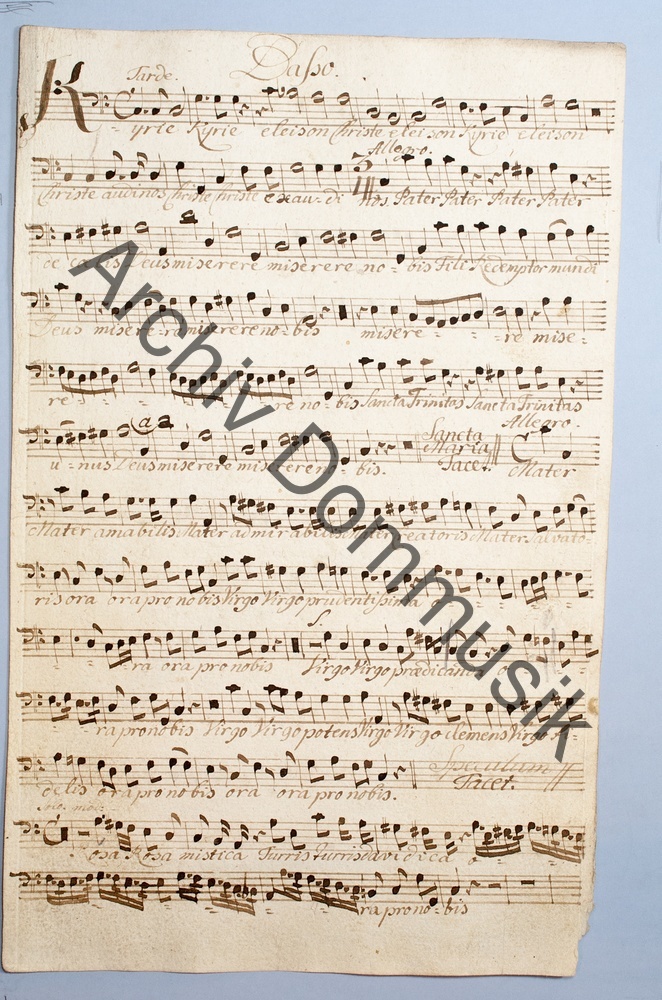 Basso.
Tarde.
Kyrie Kyrie eleison Christe eleison Kyrie eleison
Allegro.
Christe audi nos Christe Christe exau - di nos Pater Pater Pater Pater
de coelis Deus miserere miserere no - bis Fili Redemptor mundi
Deus miserere miserere no - bis misere - - - re mise -
re - - - re no - bis Sancta Trinitas Sancta Trinitas
Allegro.
u - nus Deus miserere miserere no - bis. Sancta Maria Tacet. Mater
Mater amabilis Mater admirabilis Mater creatoris Mater Salvato -
ris ora ora pro nobis Virgo Virgo prudentissima o -
- - ra ora pro nobis Virgo Virgo praedicanda o -
- - ra pro nobis Virgo Virgo potens Virgo Virgo clemens Virgo fi -
delis ora pro nobis ora ora pro nobis. Speculum Tacet.
Rosa Rosa mistica Turris turris davidica o
ra pro no - bis
Archiv Dommusik